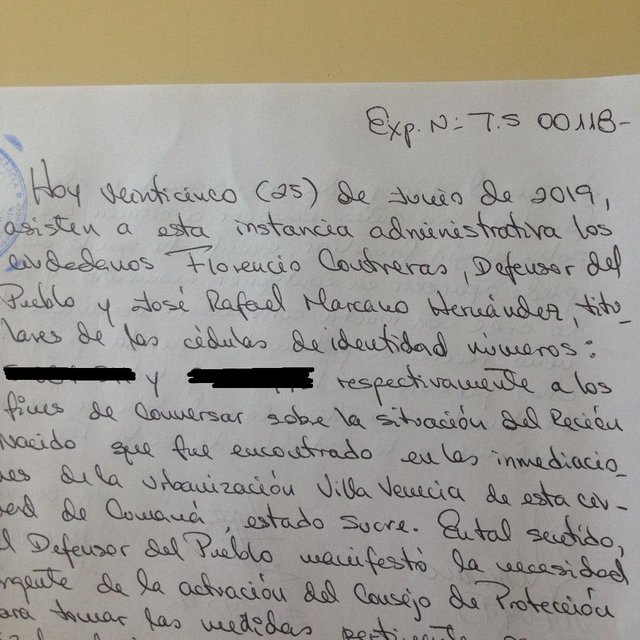 Exp. N: T.S 00118-
Hoy veinticinco (25) de Junio de 2019,
asisten a esta instancia administrativa los
ciudadanos Florencio Contreras, Defensor del
Pueblo y José Rafael Marcano Hernández, titu-
lares de las cédulas de identidad números:
y respectivamente a los
fines de conversar sobre la situación del Recién
Nacido que fue encontrado en las inmediacio-
nes de la urbanización Villa Venecia de esta ciu-
dad de Cumaná, estado Sucre. En tal sentido,
el Defensor del Pueblo manifestó la necesidad
urgente de la actuación del Consejo de Protección
para tomar las medidas